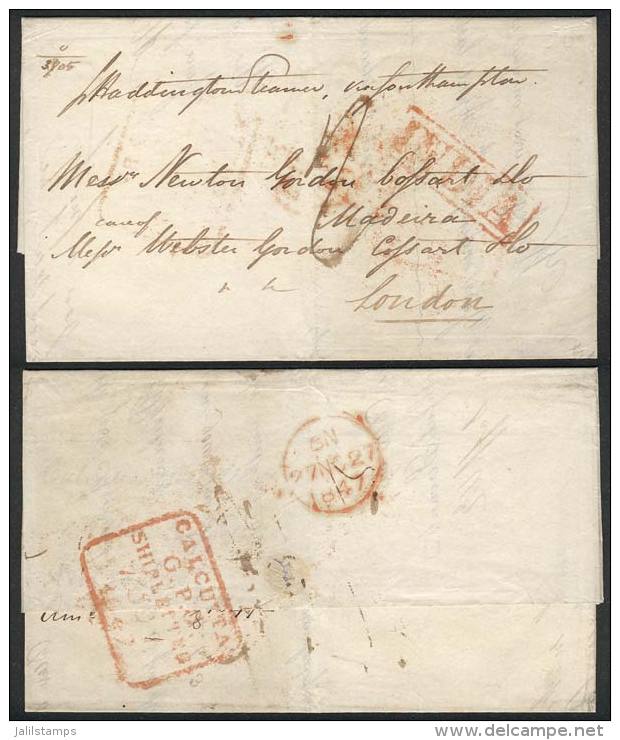 3905
p Haddington Steamer, via Southampton.
INDIA
Messrs Newton Gordon Cossart & Co
care of Madeira
Messrs Webster Gordon Cossart & Co
London
5N
27 27
1847
CALCUTTA
G.P.
SHIP LETTER
1847
jalilstamps
delcampe.net